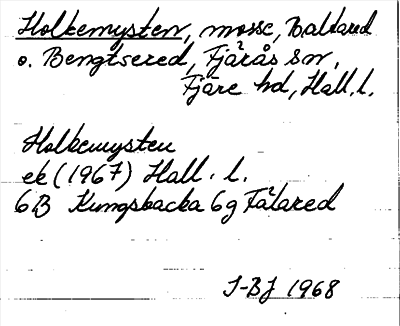 Holkemysten, mosse, Baltared
o. Bengtsered, Fjärås sn,
Fjäre hd, Hall. l.
Holkemysten
ek (1967) Hall. l.
6B Kungsbacka 6g Fälared
I-BJ 1968